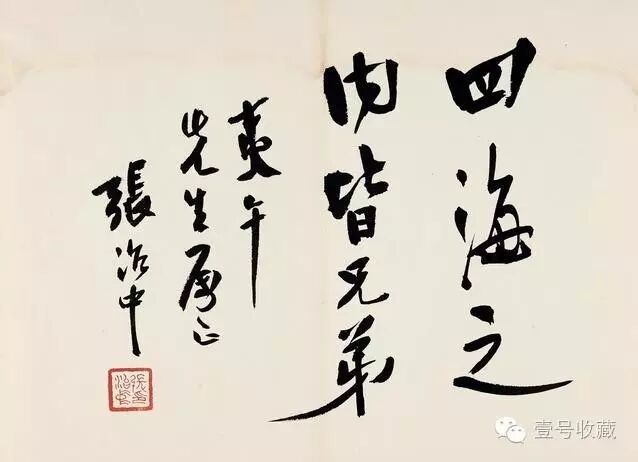 四海之
内皆兄弟
夷午
先生属正
張治中
張治中印
壹号收藏